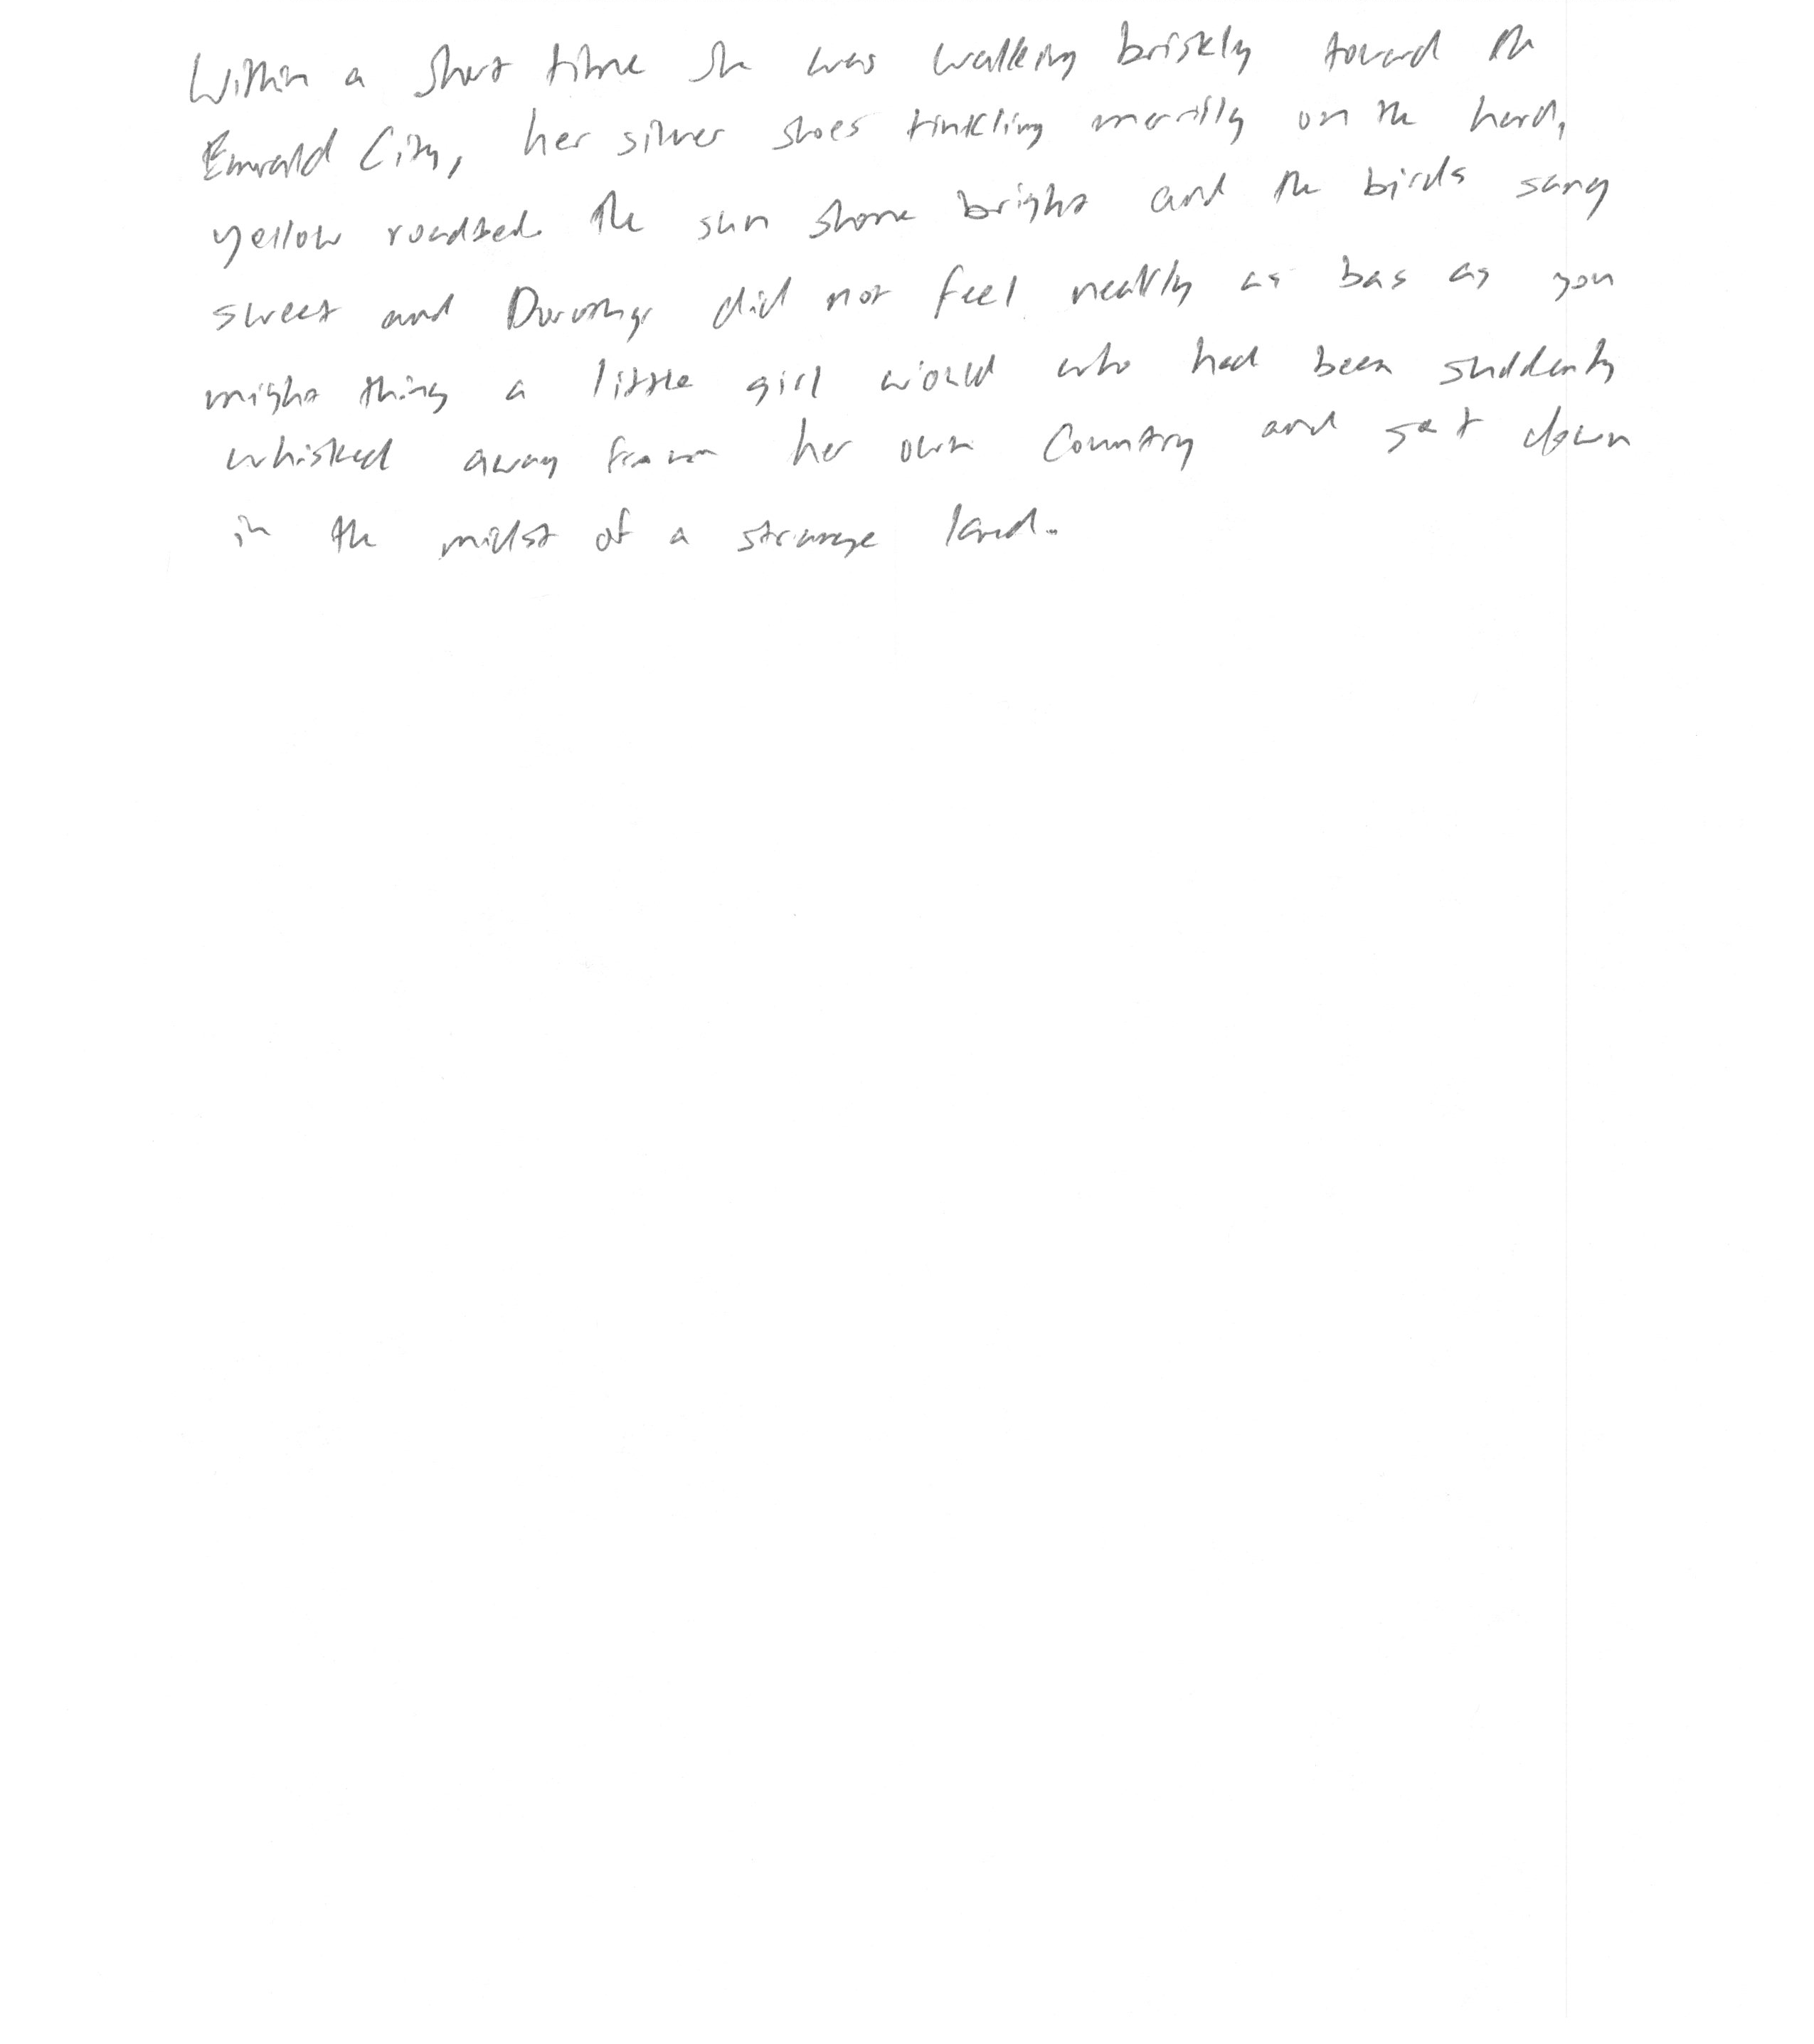 Within a short time she was walking briskly toward the
Emerald City, her silver shoes tinkling merrily on the hard,
yellow roadbed. The sun shone bright and the birds sang
sweet and Dorothy did not feel neatly as bas as you
might thing a little girl would who had been suddenly
whisked away from her own country and set down
in the midst of a strange land.